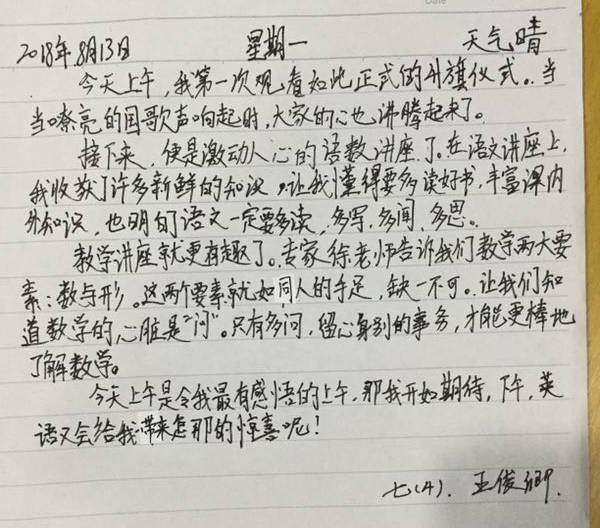 Date
2018年8月13日 星期一 天气晴
今天上午，我第一次观看如此正式的升旗仪式。当
当嘹亮的国歌声响起时，大家的心也沸腾起来了。
接下来，便是激动人心的语数讲座了。在语文讲座上，
我收获了许多新鲜的知识，让我懂得要多读好书，丰富课内
外知识，也明白了语文一定要多读，多写，多闻，多思。
数学讲座就更有趣了。专家徐老师告诉我们数学两大要
素：数与形。这两个要素就如同人的手足，缺一不可。让我们知
道数学的心脏是“问”。只有多问，留心身别的事务，才能更棒地
了解数学。
今天上午是令我最有感悟的上午，那我开始期待，下午，英
语又会给我带来怎那的惊喜呢！
七(4). 王俊卿.